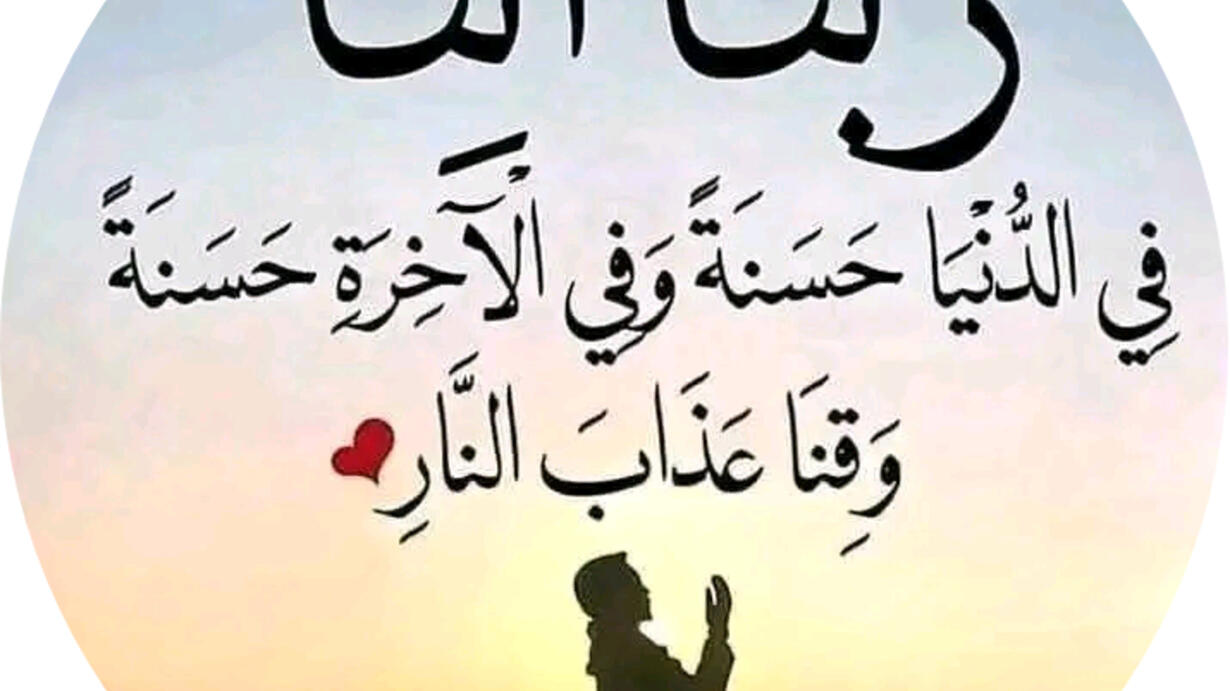 ربنا آتنا
فِي الدُّنْيَا حَسَنَةً وَفِي الْآخِرَةِ حَسَنَةً
وَقِنَا عَذَابَ النَّارِ